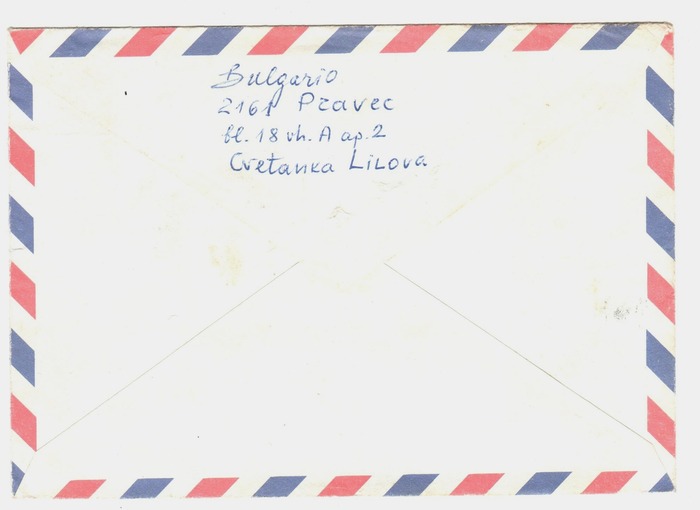 Bulgaria
2161 Pravec
bl. 18 vh. A ap. 2
Cvetanka Lilova